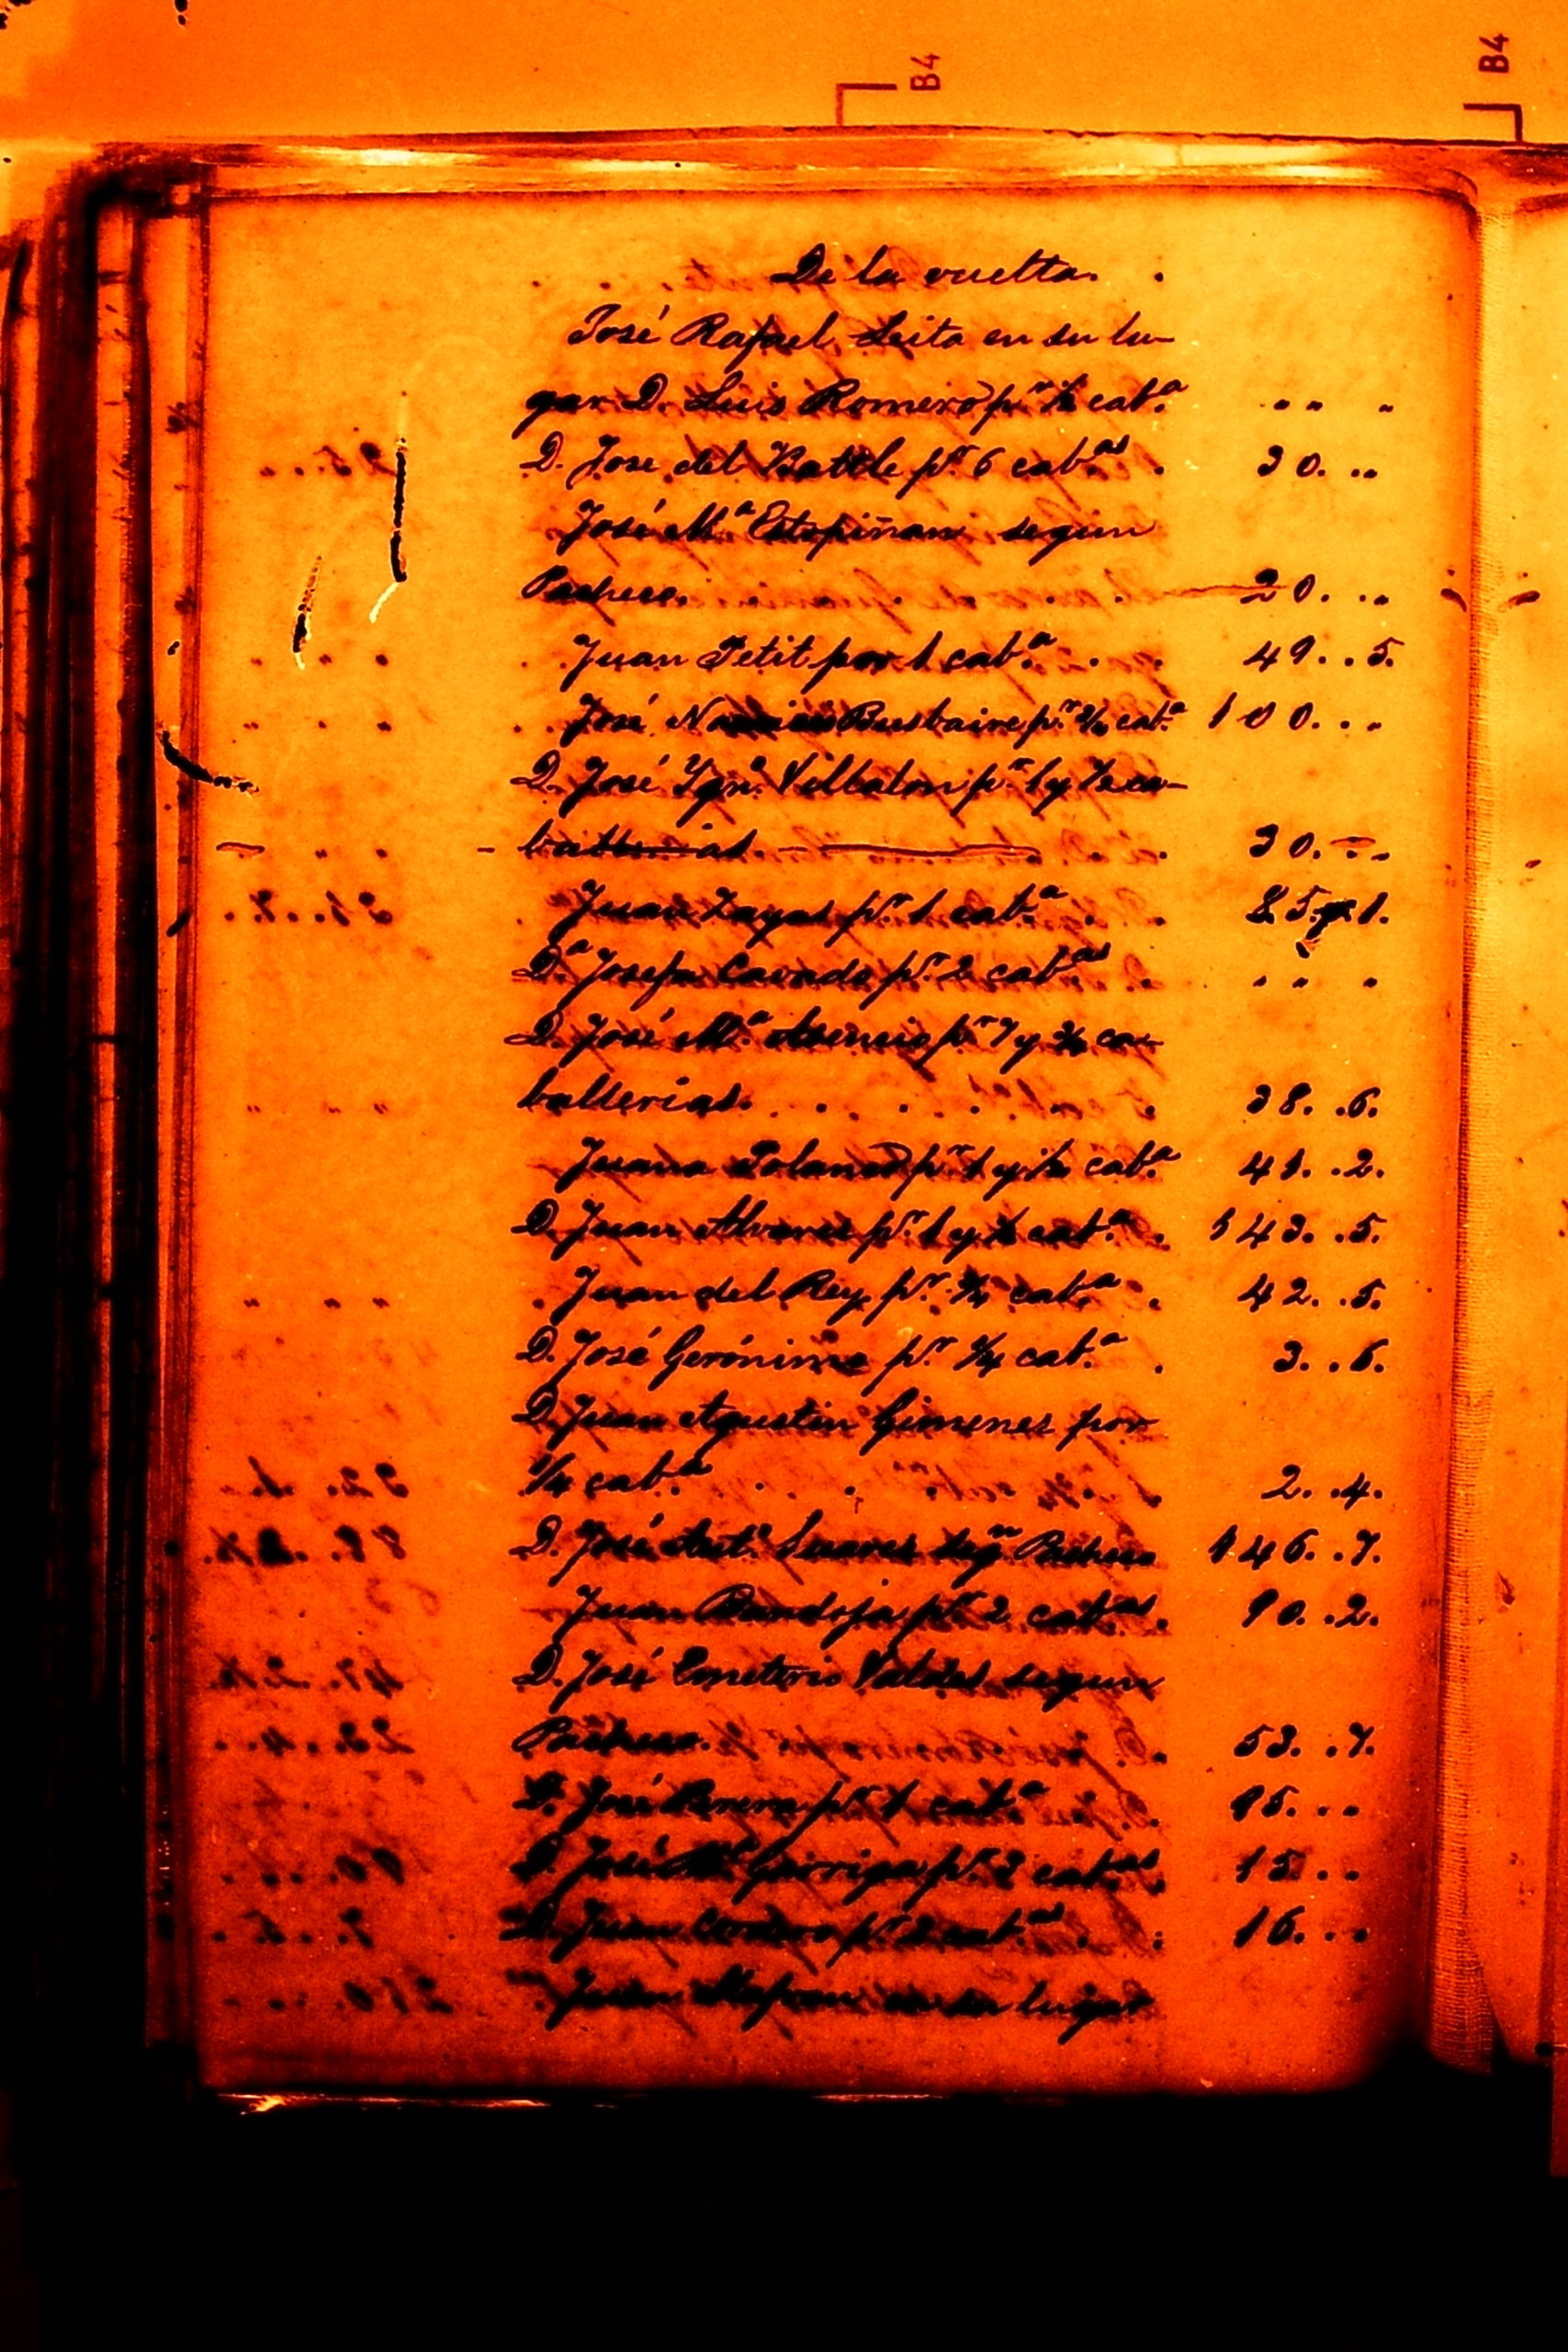 B4
B4
De la vuelta.
José Rafael Leita en su lu-
gar D. Luis Romero pr. ½ cab.ª „ „ „
D. Jose del Battle pr. 6 cab.as 30. „
José M.ª Estopiñan segun
Pacheco. 20. „
Juan Petit por 1 cab.ª 49. . 5.
José Bustaire pr. cab.ª 100. . „
D. José Ygn.º Villalon pr. 1 y ½ ca-
ballerias 30. „
Juan Zayas pr. 1 cab.ª 1.
D.ª Josefa pr. 2 cab.as „ „ „
D. José M.ª Asencio pr. 7 y ¾ ca-
ballerias. 38. . 6.
Juana Polanco pr. 1 y ½ cab.ª 41. . 2.
D. Juan Alvarez pr. 1 y ½ cab.ª 143. . 5.
Juan del Rey pr. ¾ cab.ª 42. . 5.
D. José Gerónimo pr. cab.ª 3. . 6.
D. Juan Agustin Gimenez por
¼ cab.ª 2. . 4.
D. José Ant.º Suarez seg.n Pacheco 146. . 7.
Juan Bandoja pr. 2 cab.as 90. . 2.
D. José Emeterio Valdes segun
Pacheco. 53. . 7.
D. José Perera pr. 1 cab.ª 95. . .
D. José M.ª Garriga pr. 2 cab.as 15. . .
D. Juan pr. 2 cab.as 16. . .
Juan en su lugar